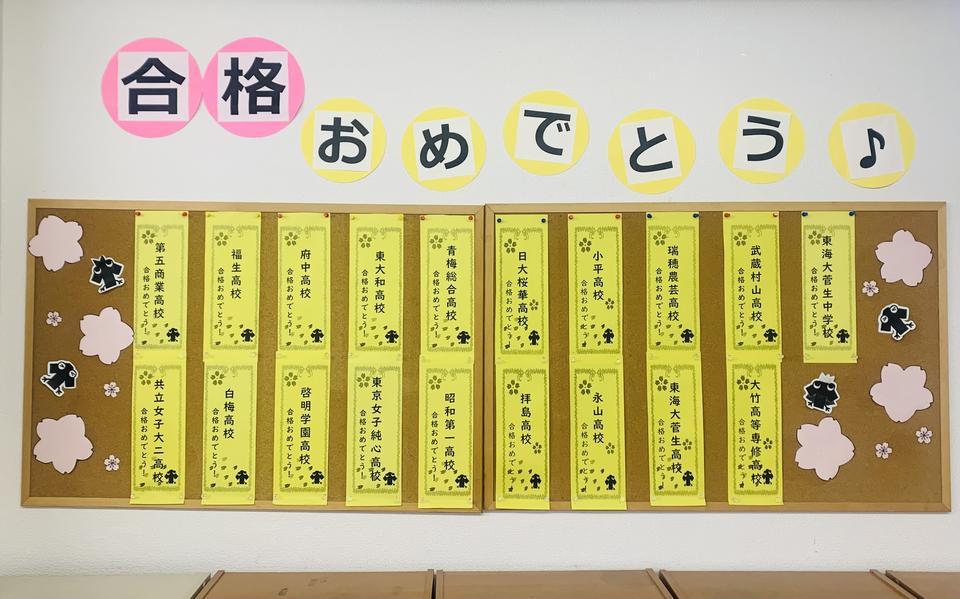 合格
おめでとう♪
第五商業高校
合格おめでとう！
福生高校
合格おめでとう！
府中高校
合格おめでとう！
東大和高校
合格おめでとう！
青梅総合高校
合格おめでとう！
日大桜華高校
合格おめでとう！
小平高校
合格おめでとう！
瑞穂農芸高校
合格おめでとう！
武蔵村山高校
合格おめでとう！
東海大菅生中学校
合格おめでとう！
共立女子大二高校
合格おめでとう！
白梅高校
合格おめでとう！
啓明学園高校
合格おめでとう！
東京女子純心高校
合格おめでとう！
昭和第一高校
合格おめでとう！
拝島高校
合格おめでとう！
永山高校
合格おめでとう！
東海大菅生高校
合格おめでとう！
大竹高等専修高校
合格おめでとう！